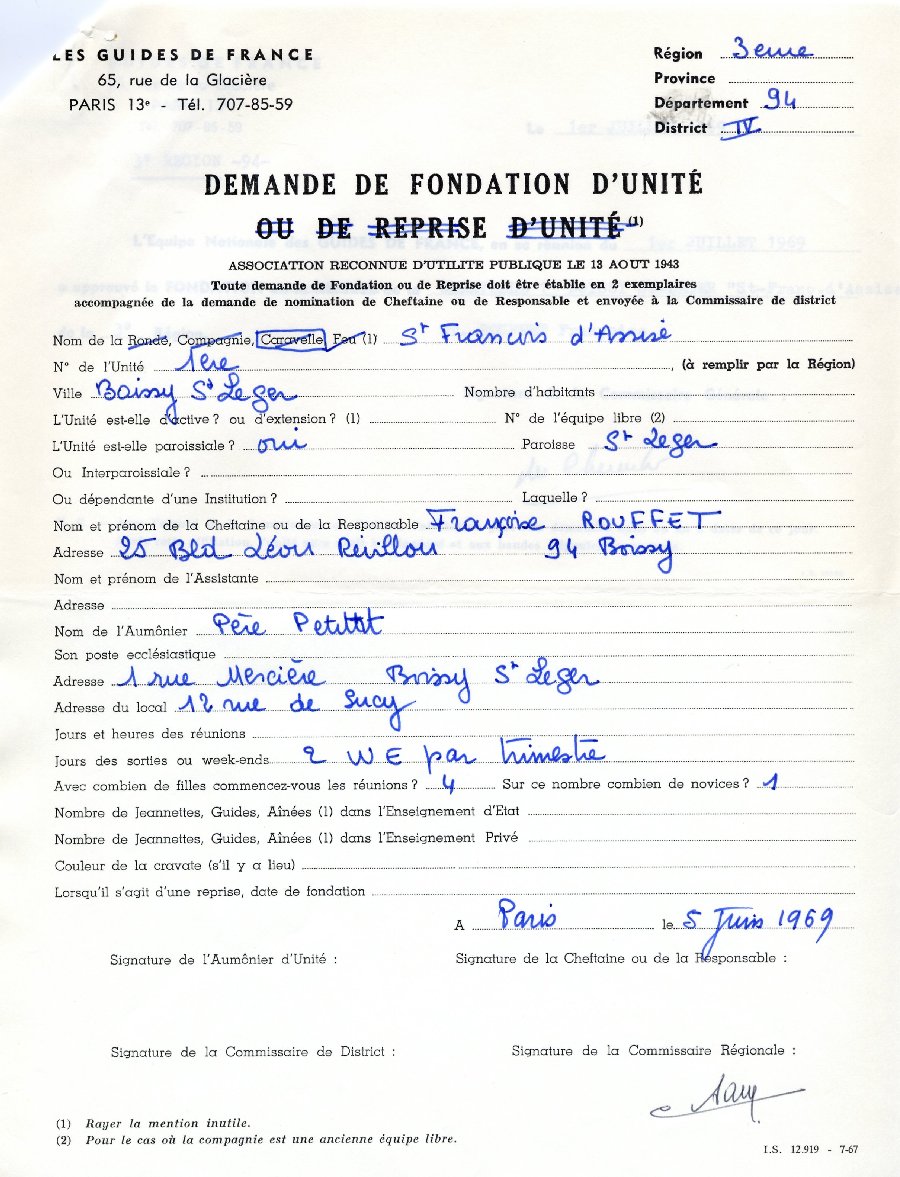 LES GUIDES DE FRANCE
65, rue de la Glacière
PARIS 13e - Tél. 707-85-59
Région 3eme
Province
Département 94
District IV
DEMANDE DE FONDATION D'UNITÉ
OU DE REPRISE D'UNITÉ (1)
ASSOCIATION RECONNUE D'UTILITE PUBLIQUE LE 13 AOUT 1943
Toute demande de Fondation ou de Reprise doit être établie en 2 exemplaires
accompagnée de la demande de nomination de Cheftaine ou de Responsable et envoyée à la Commissaire de district
Nom de la Ronde, Compagnie, Caravelle, Feu (1) St Francois d'Assise
N° de l'Unité 1ere , (à remplir par la Région)
Ville Boissy St Leger Nombre d'habitants
L'Unité est-elle d'active ? ou d'extension ? (1) N° de l'équipe libre (2)
L'Unité est-elle paroissiale ? oui Paroisse St Leger
Ou Interparoissiale ?
Ou dépendante d'une Institution ? Laquelle ?
Nom et prénom de la Cheftaine ou de la Responsable Françoise ROUFFET
Adresse 25 Bld Léon Révillon 94 Boissy
Nom et prénom de l'Assistante
Adresse
Nom de l'Aumônier Père
Son poste ecclésiastique
Adresse 1 rue Mercière Boissy St Leger
Adresse du local 12 rue de Sucy
Jours et heures des réunions
Jours des sorties ou week-ends 2 WE par trimestre
Avec combien de filles commencez-vous les réunions ? 4 Sur ce nombre combien de novices ? 1
Nombre de Jeannettes, Guides, Aînées (1) dans l'Enseignement d'Etat
Nombre de Jeannettes, Guides, Aînées (1) dans l'Enseignement Privé
Couleur de la cravate (s'il y a lieu)
Lorsqu'il s'agit d'une reprise, date de fondation
A Paris le 5 Juin 1969
Signature de l'Aumônier d'Unité :
Signature de la Cheftaine ou de la Responsable :
Signature de la Commissaire de District :
Signature de la Commissaire Régionale :
(1) Rayer la mention inutile.
(2) Pour le cas où la compagnie est une ancienne équipe libre.
I.S. 12.919 - 7-67